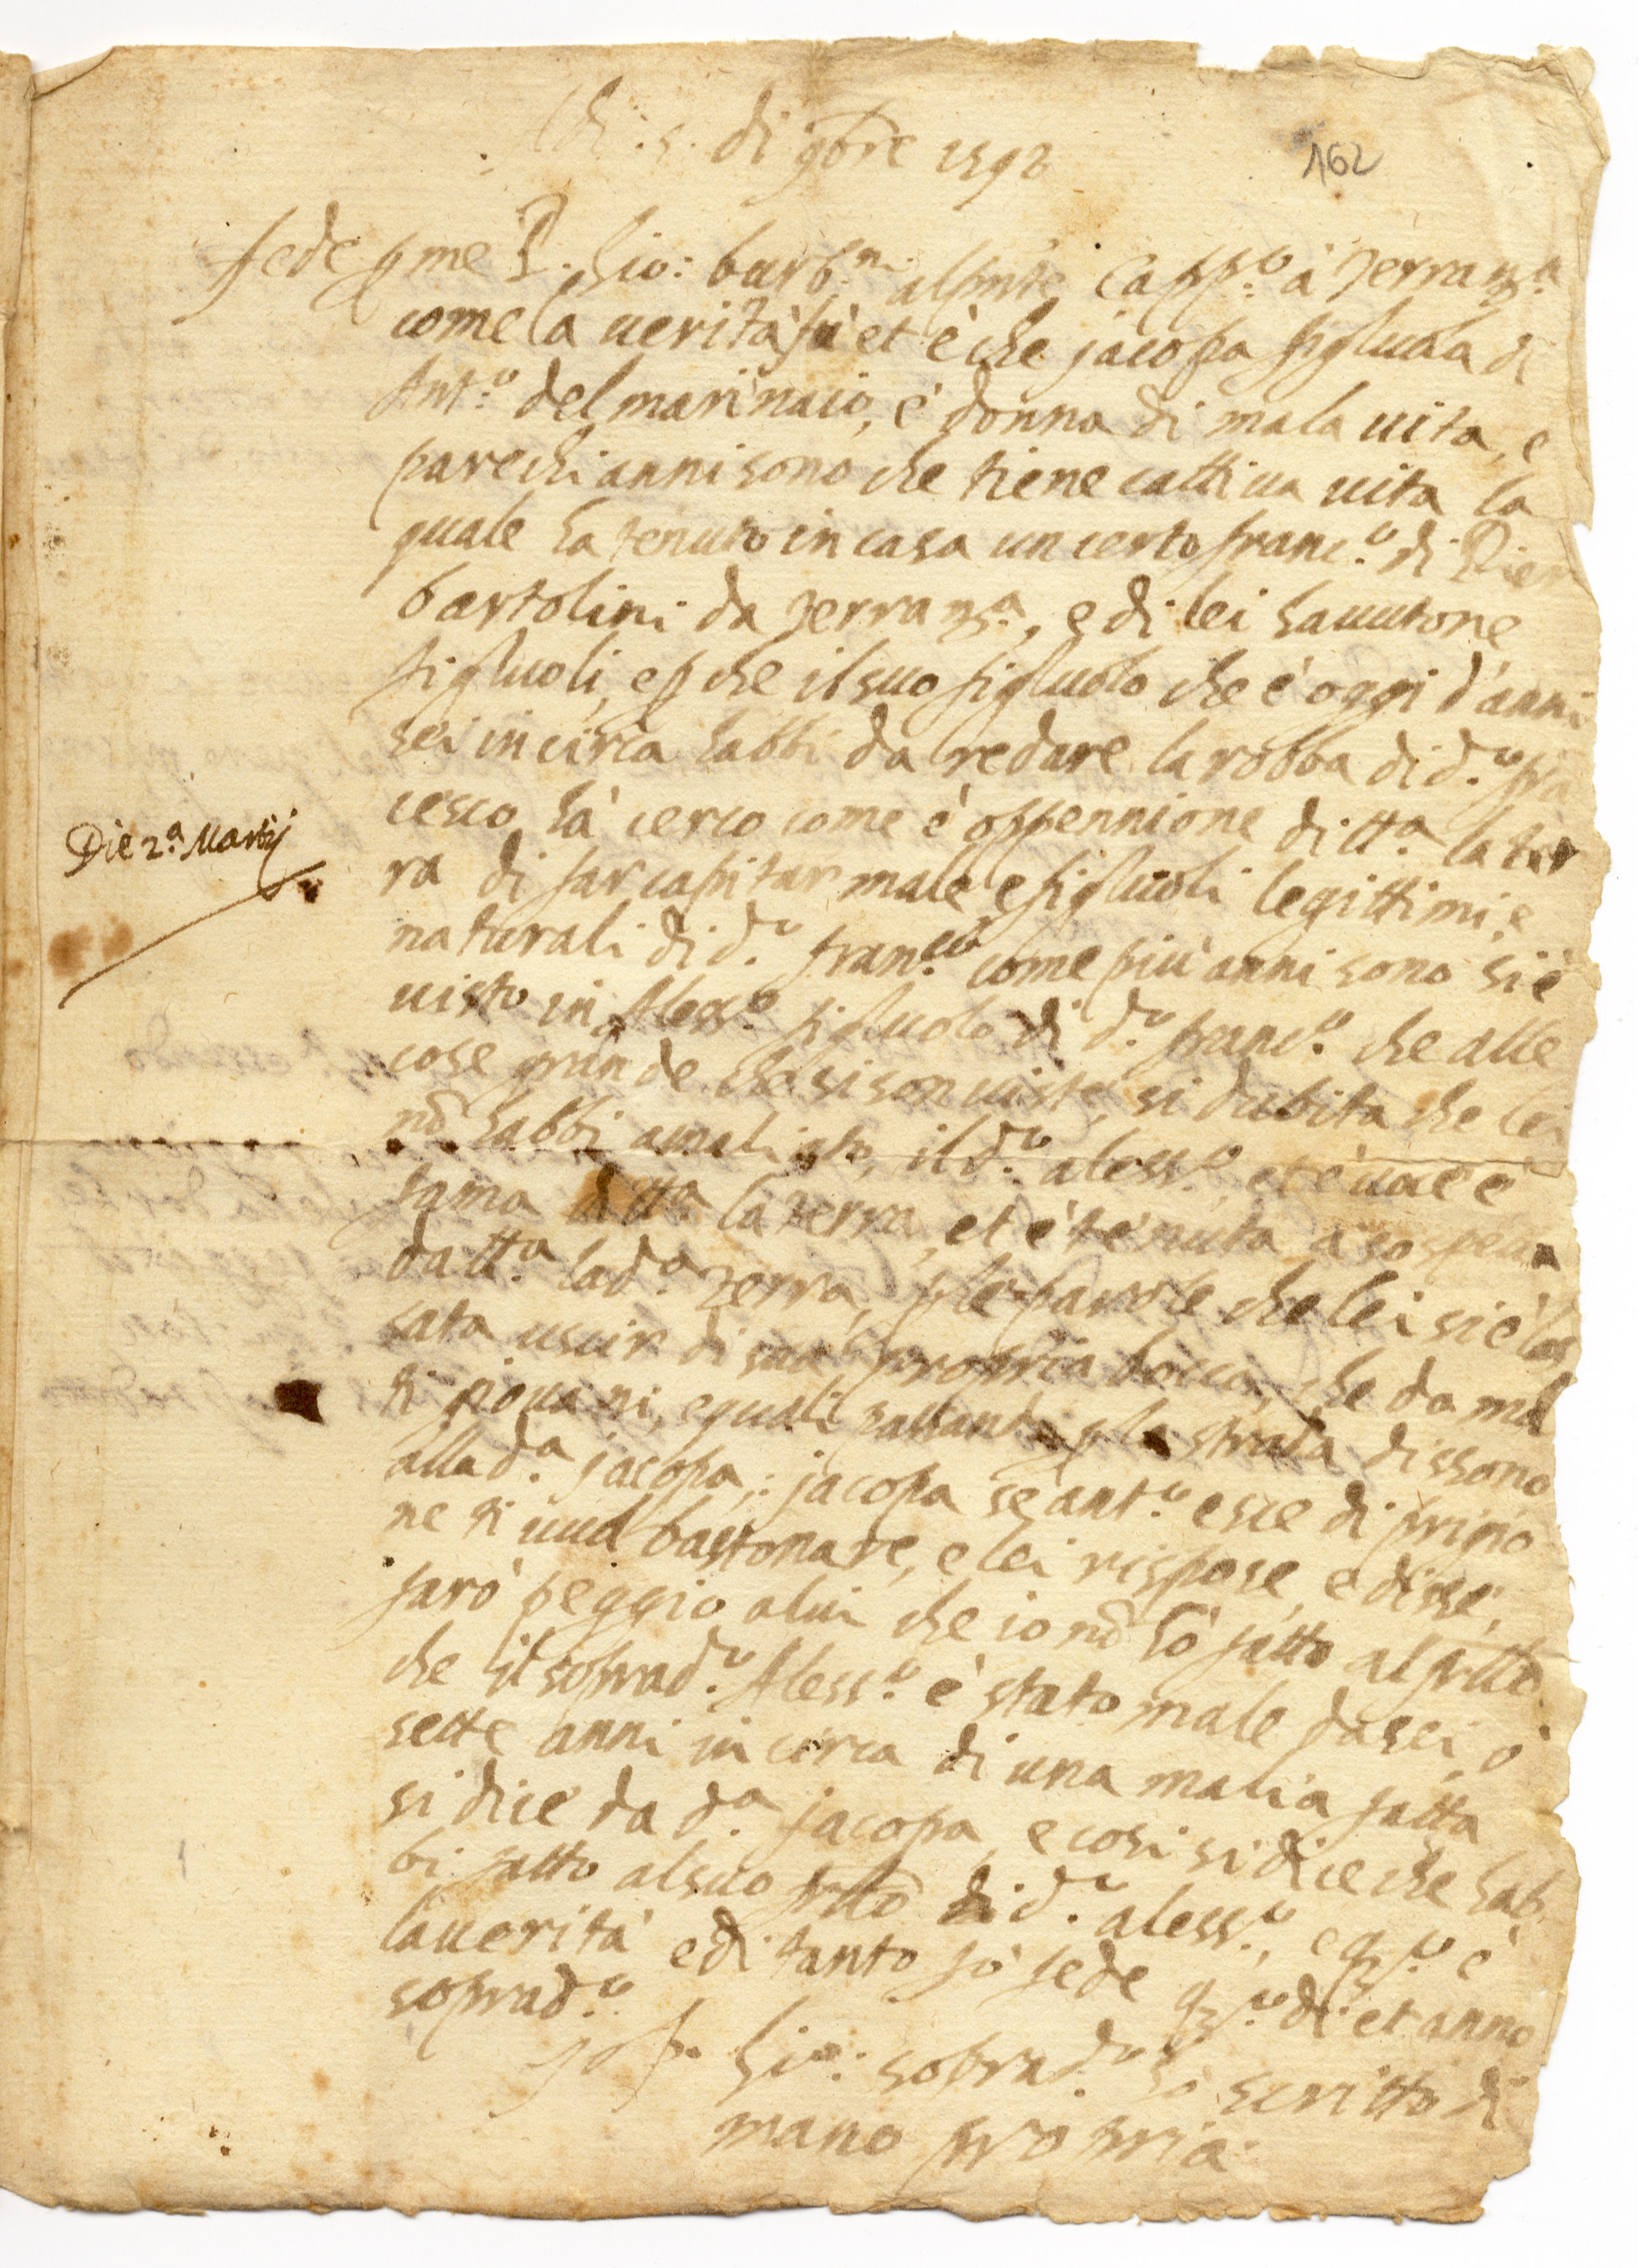 Adi .5. di 9bre 1592
162
fede p me P. Gio: barbni al pnte Capp.o à Terranza
come la uerità fu et è che jacopa figluola di
Ant.o del marinaio, è donna di mala uita, e
parechi anni sono che tiene cattiua uita la
quale ha tenuto in casa un certo franc.o di Pier
bartolini da Terranza, e di lei hauutone
figluoli, e p che il suo figluolo che è oggi d'anni
sei in circa habbi da redare la robba di d.o fra
cesco hà cerco come è oppennione di tt.a la ter
ra di far capitar male e figluoli legittimi, e
naturali di d.o fran.co come più anni sono si è
uisto in Aless.o figluolo di d.o franc.o che alle
cose grande che si son uiste, si dubita che lei
nō habbi amaliato, il d.o aless.o, et è uoce e
fama di tt.a la terra, et è tenuta a sospetta
da tt.a la d.a terra, p le parole che lei si è las
sata uscir di sua propria bocca, che da mol
ti giouani, e quali passando p la strada dissono
alla d.a jacopa,: jacopa se ant.o esce di prigio
ne ti uuol bastonare, e lei rispose, e disse,
farò peggio a lui che io nō hò fatto al putto
che il soprad.o Aless.o è stato male da sei, ò
sette anni in circa di una malia fatta
si dice da d.a jacopa, e cosi si dice che hab
bi fatto al suo putto di d.o aless.o, e qsto è
la uerità e di tanto fò fede qsto di et anno
soprad.o
Io p. Gio: soprad.o hò scritto di
mano propria
Die 2.a Martij